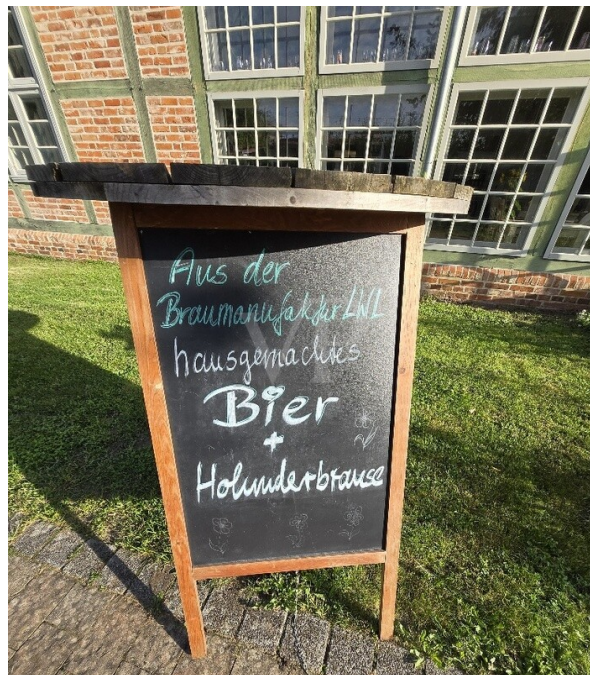 Aus der
Braumanufaktur LWL
hausgemachtes
Bier
+
Holunderbrause